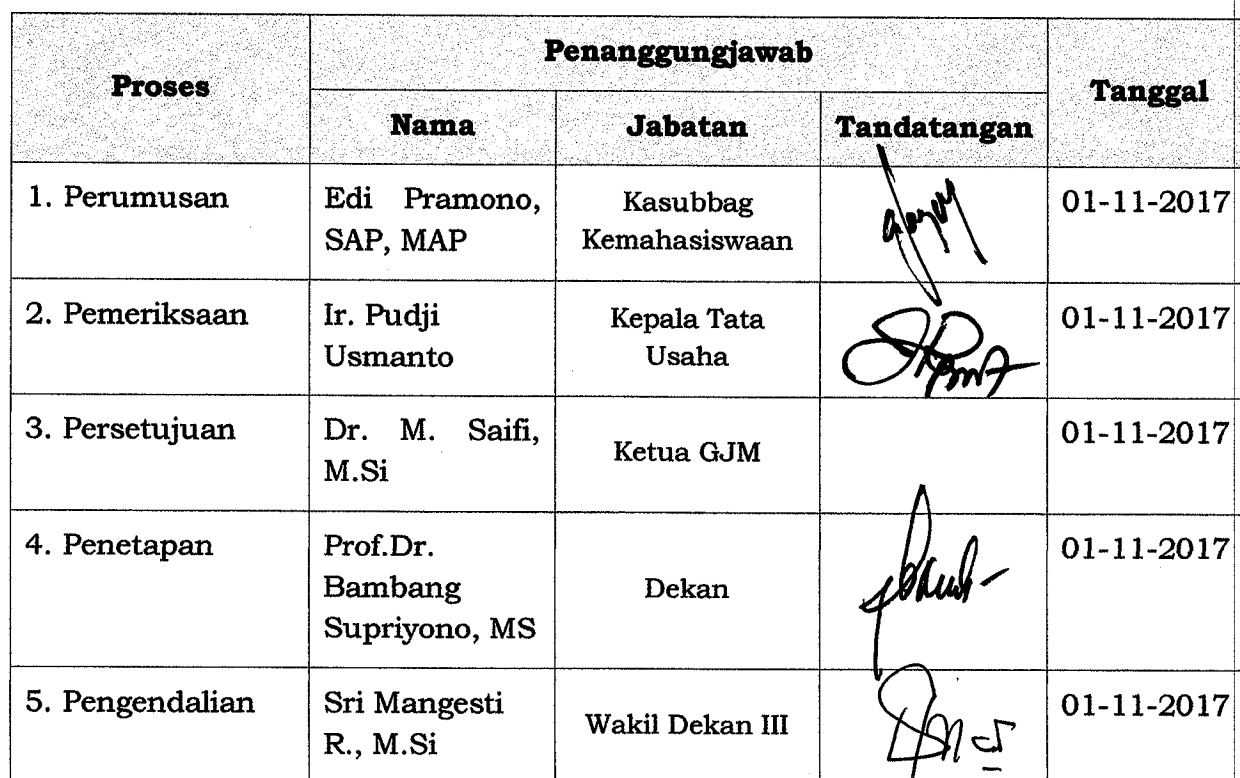 Proses
Penanggungjawab
Tanggal
Nama
Jabatan
Tandatangan
1. Perumusan
Edi Pramono,
SAP, MAP
Kasubbag
Kemahasiswaan
01-11-2017
2. Pemeriksaan
Ir. Pudji
Usmanto
Kepala Tata
Usaha
01-11-2017
3. Persetujuan
Dr. M. Saifi,
M.Si
Ketua GJM
01-11-2017
4. Penetapan
Prof.Dr.
Bambang
Supriyono, MS
Dekan
01-11-2017
5. Pengendalian
Sri Mangesti
R., M.Si
Wakil Dekan III
01-11-2017